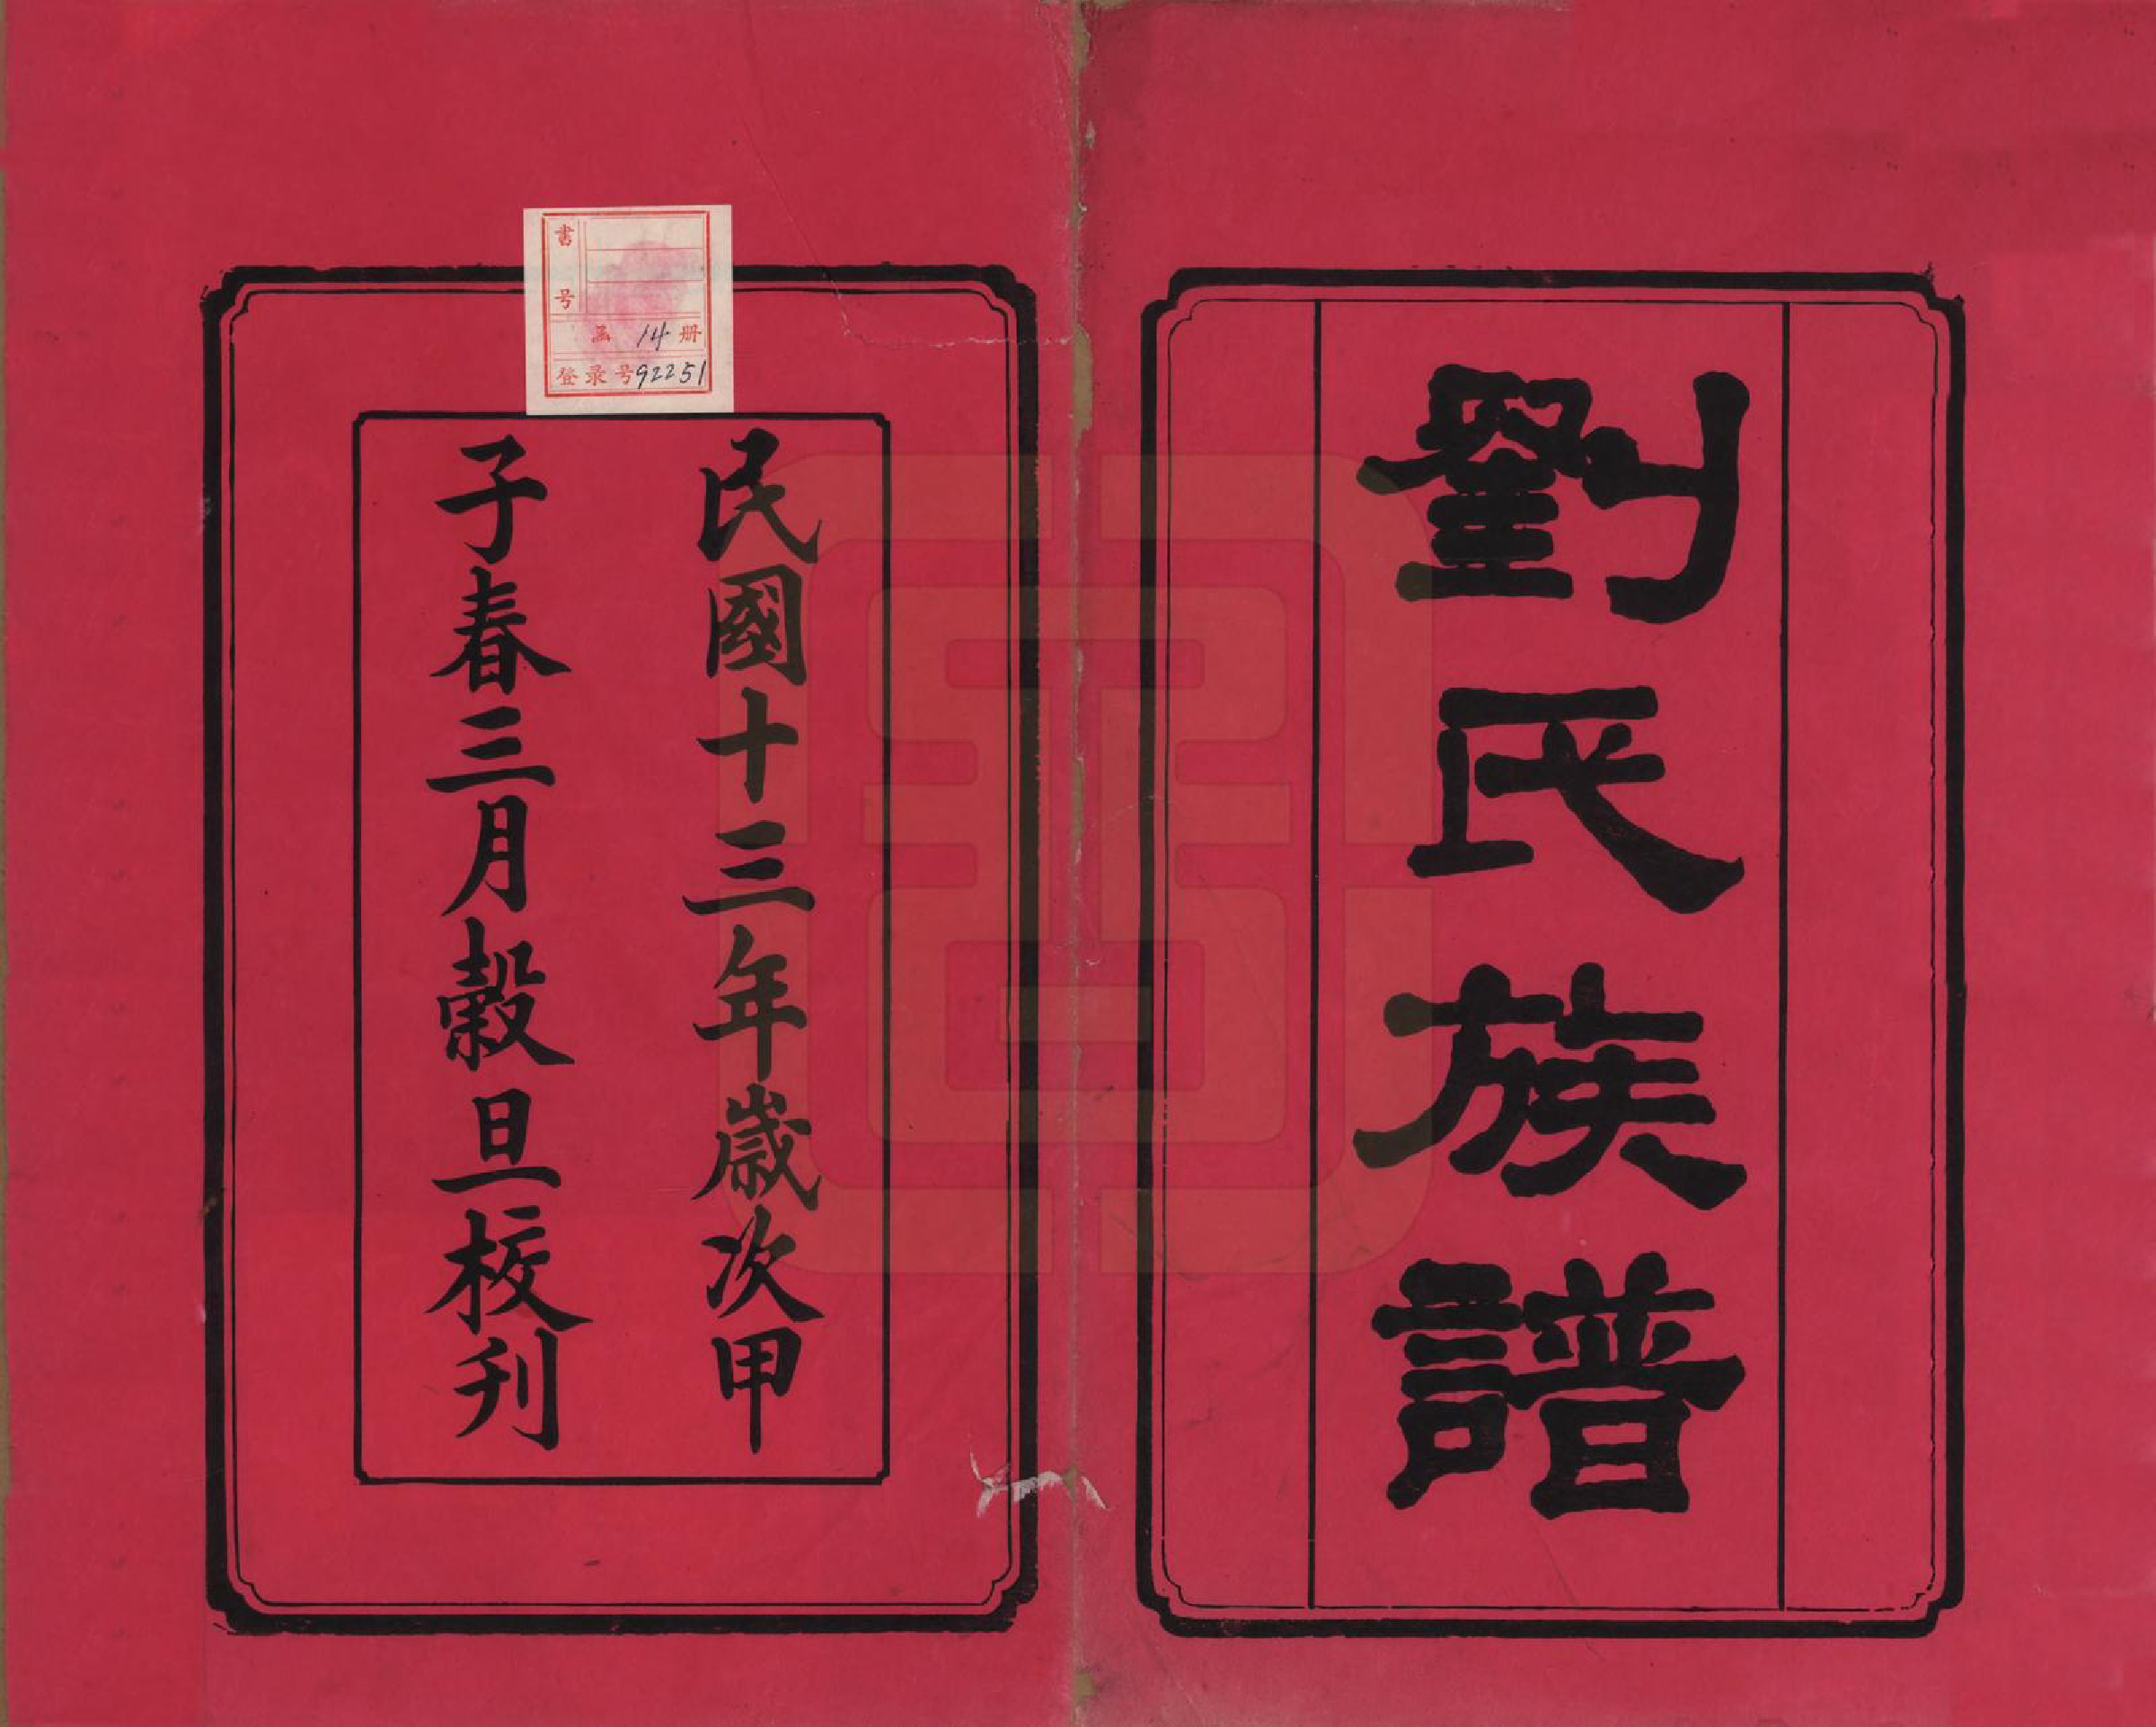 劉氏族譜
民國十三年歲次甲
子春三月穀旦校刊
書号
函 14 册
登录号92251